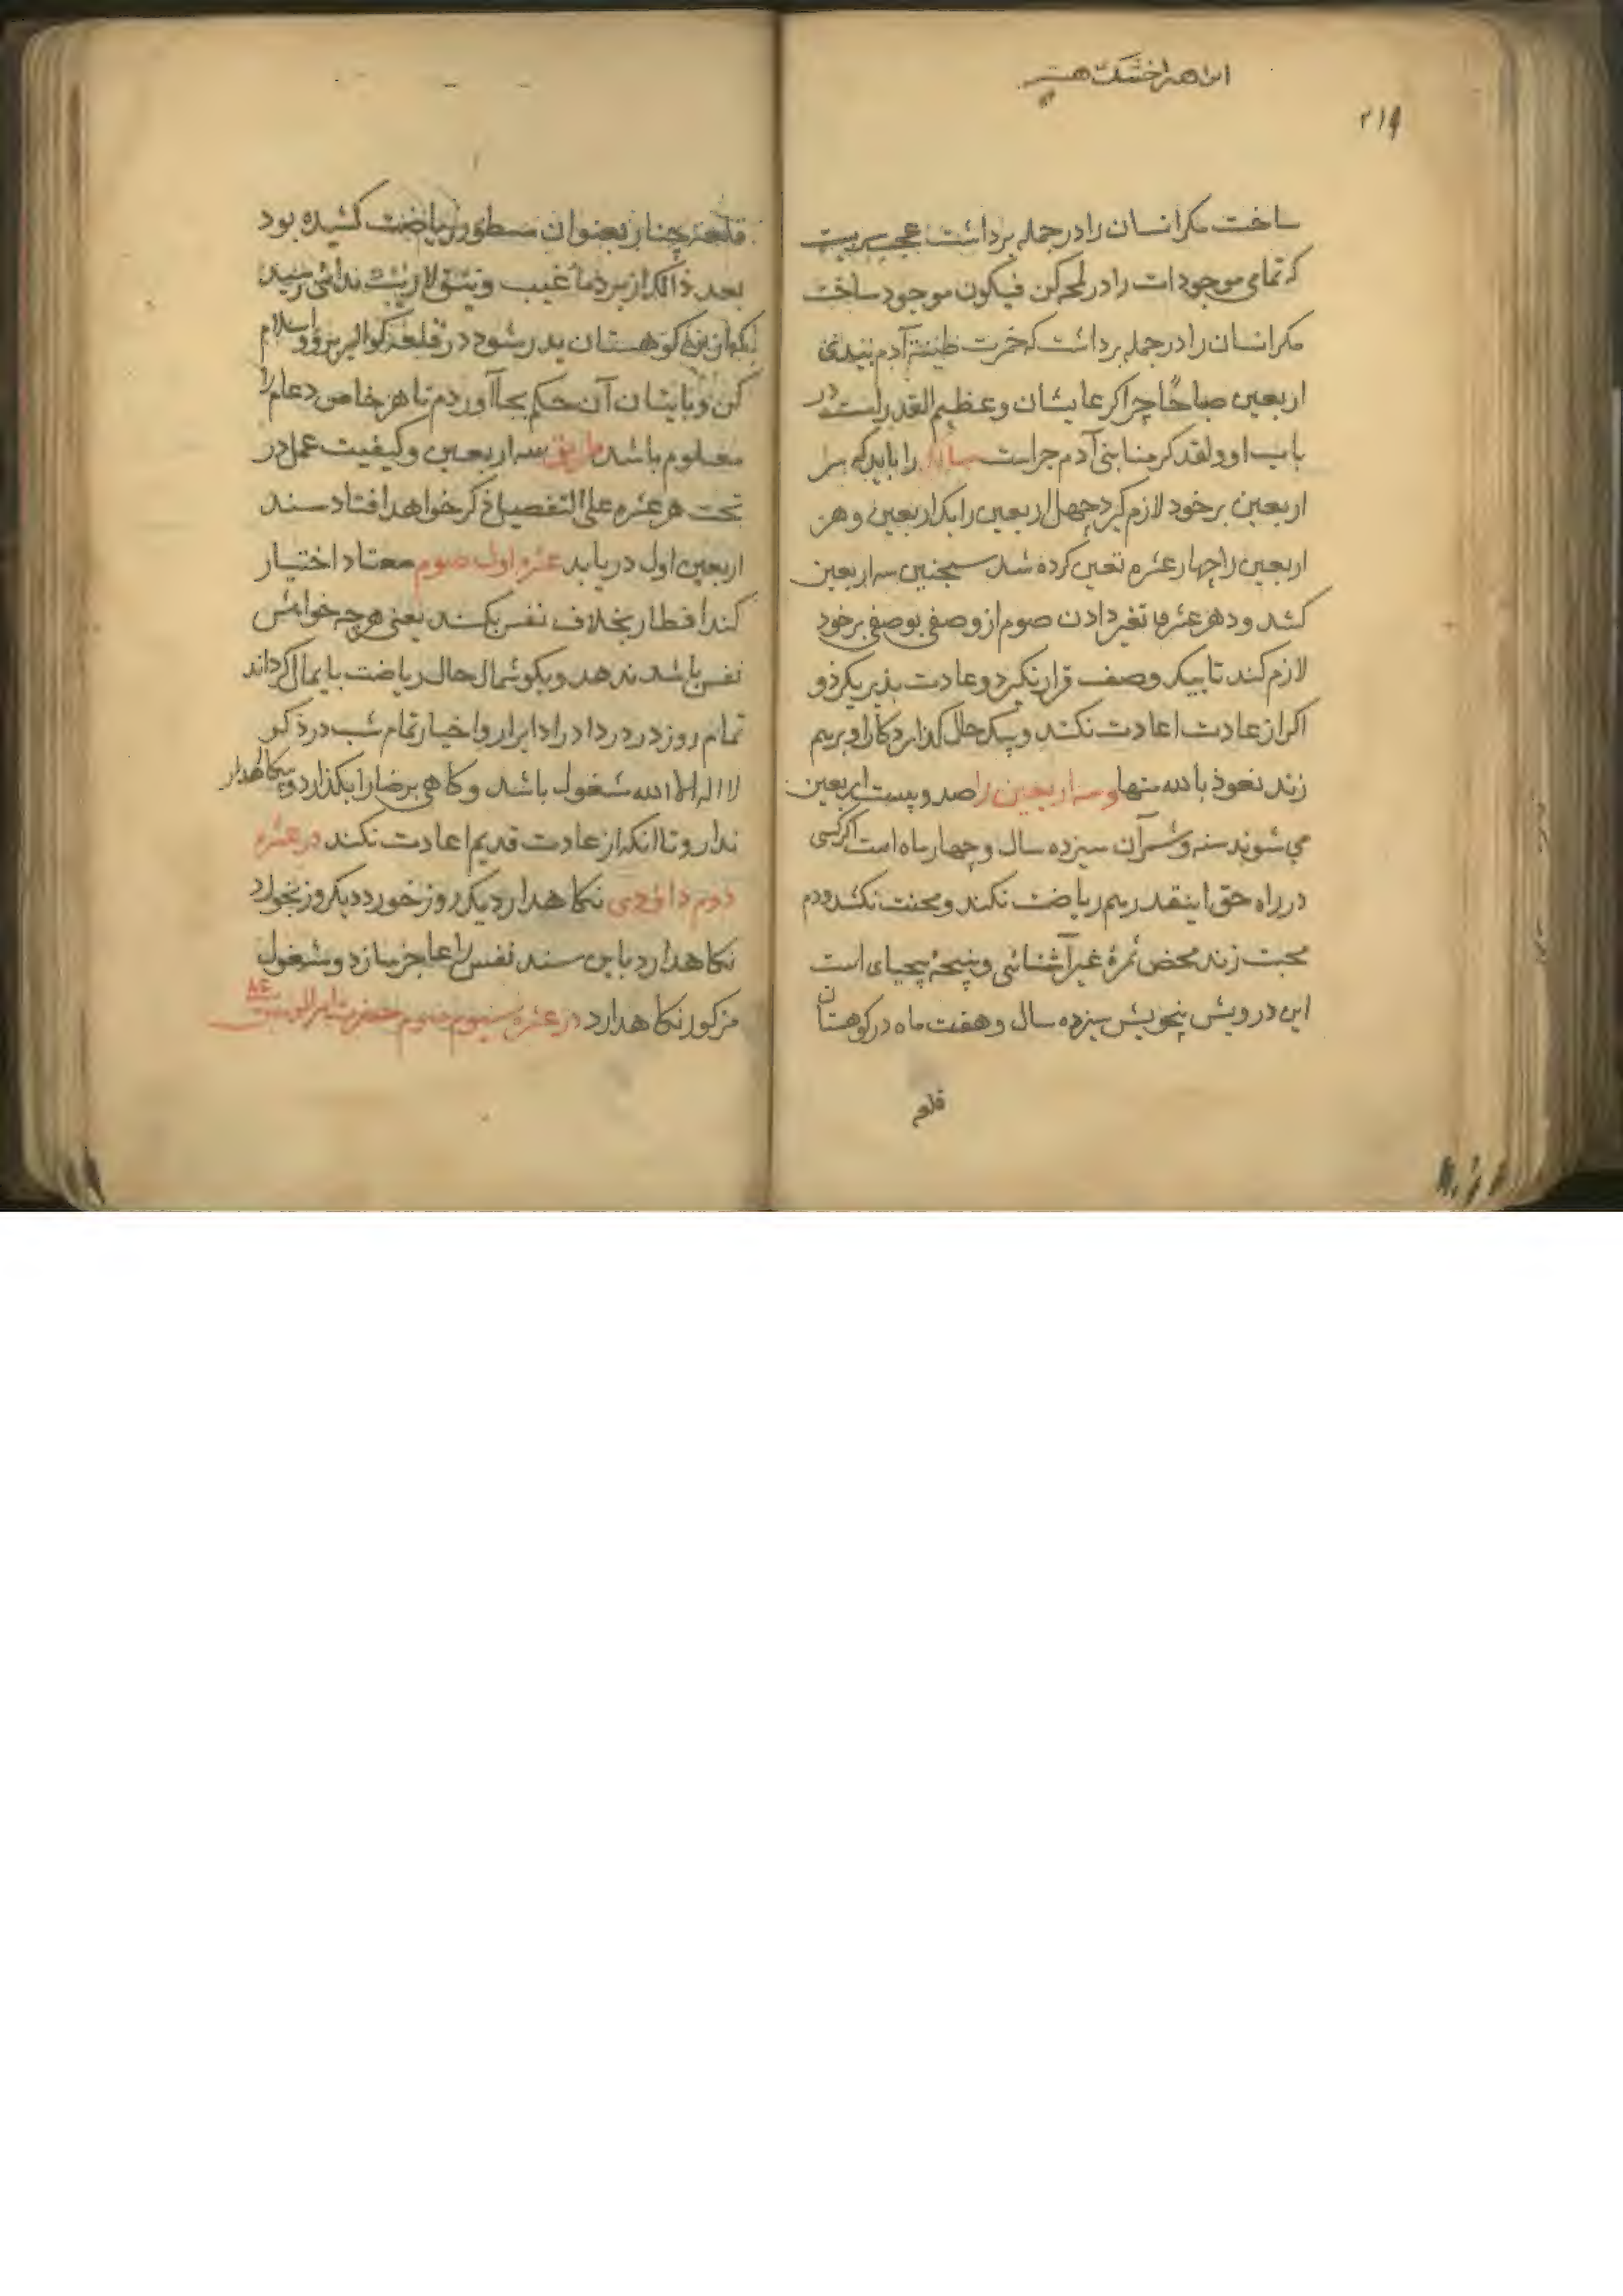 ۲۱۹
ساخت مکر انسان را در جمله برداشت
که تمامی موجودات را در لمحه کن فیکون موجود ساخت
مکر انسان را در جمله برداشت که خمرت طینة آدم بیدی
اربعین صباحًا چرا که عالیشان و عظیم القدر است در
باب او ولقد کرمنا بنی آدم را باید که سه
اربعین بر خود لازم کیرد چهل اربعین را یک اربعین و هر
اربعین را چهار عشره تعین کرده شد سه اربعین
کشد و در هر عشره تغیر دادن صوم از وصفی بوصفی بر خود
لازم کند تا بیک وصف قرار نکیرد و عادت پذیر نکردد و
اکر از عادت اعادت نکند و بیک حال کذارد کار او برهم
زند نعوذ بالله منها و سه اربعین را صد و بیست اربعین
می شوند سنه و شهر آن سیزده سال و چهار ماه است اکر کسی
در راه حق اینقدر هم ریاضت نکند و محنت نکشد و دم
محبت زند محض ثمرهٔ غیر آشنائی و نتیجهٔ بیحیای است
این درویش سیزده سال و هفت ماه در کوهستان
قلعه
قلعه چنار بعنوان و ریاضت کشیده بود
بعد ذالک از غیب ندائی رسید
کوهستان بدر شو در قلعه کوالیر برو و اسلام
کن آن حکم بجا آوردم تا هر خاص و عام را
معلوم باشد طریق سه اربعین و کیفیت عمل در
تحت هر عشره علی التفصیل ذکر خواهد افتاد سند
اربعین اول دریابد عشره اول صوم معتاد اختیار
کند افطار بخلاف نفس بکند یعنی هر چه خواهش
نفس باشد ندهد و بکوشمال حال ریاضت پایمال کرداند
تمام روز در اوراد ابرار و اخیار تمام شب در ذکر
لا اله الا الله مشغول باشد و کاهی بکذارد و نکاهدار
ندارد تا آنکه از عادت قدیم اعادت نکند در عشره
دوم داؤدی نکاهدارد یک روز خورد دیکر روز نخورد
نکاهدارد باین سند نفس را عاجز سازد و مشغول
مذکور نکاهدارد در عشره سیوم صوم حضرت